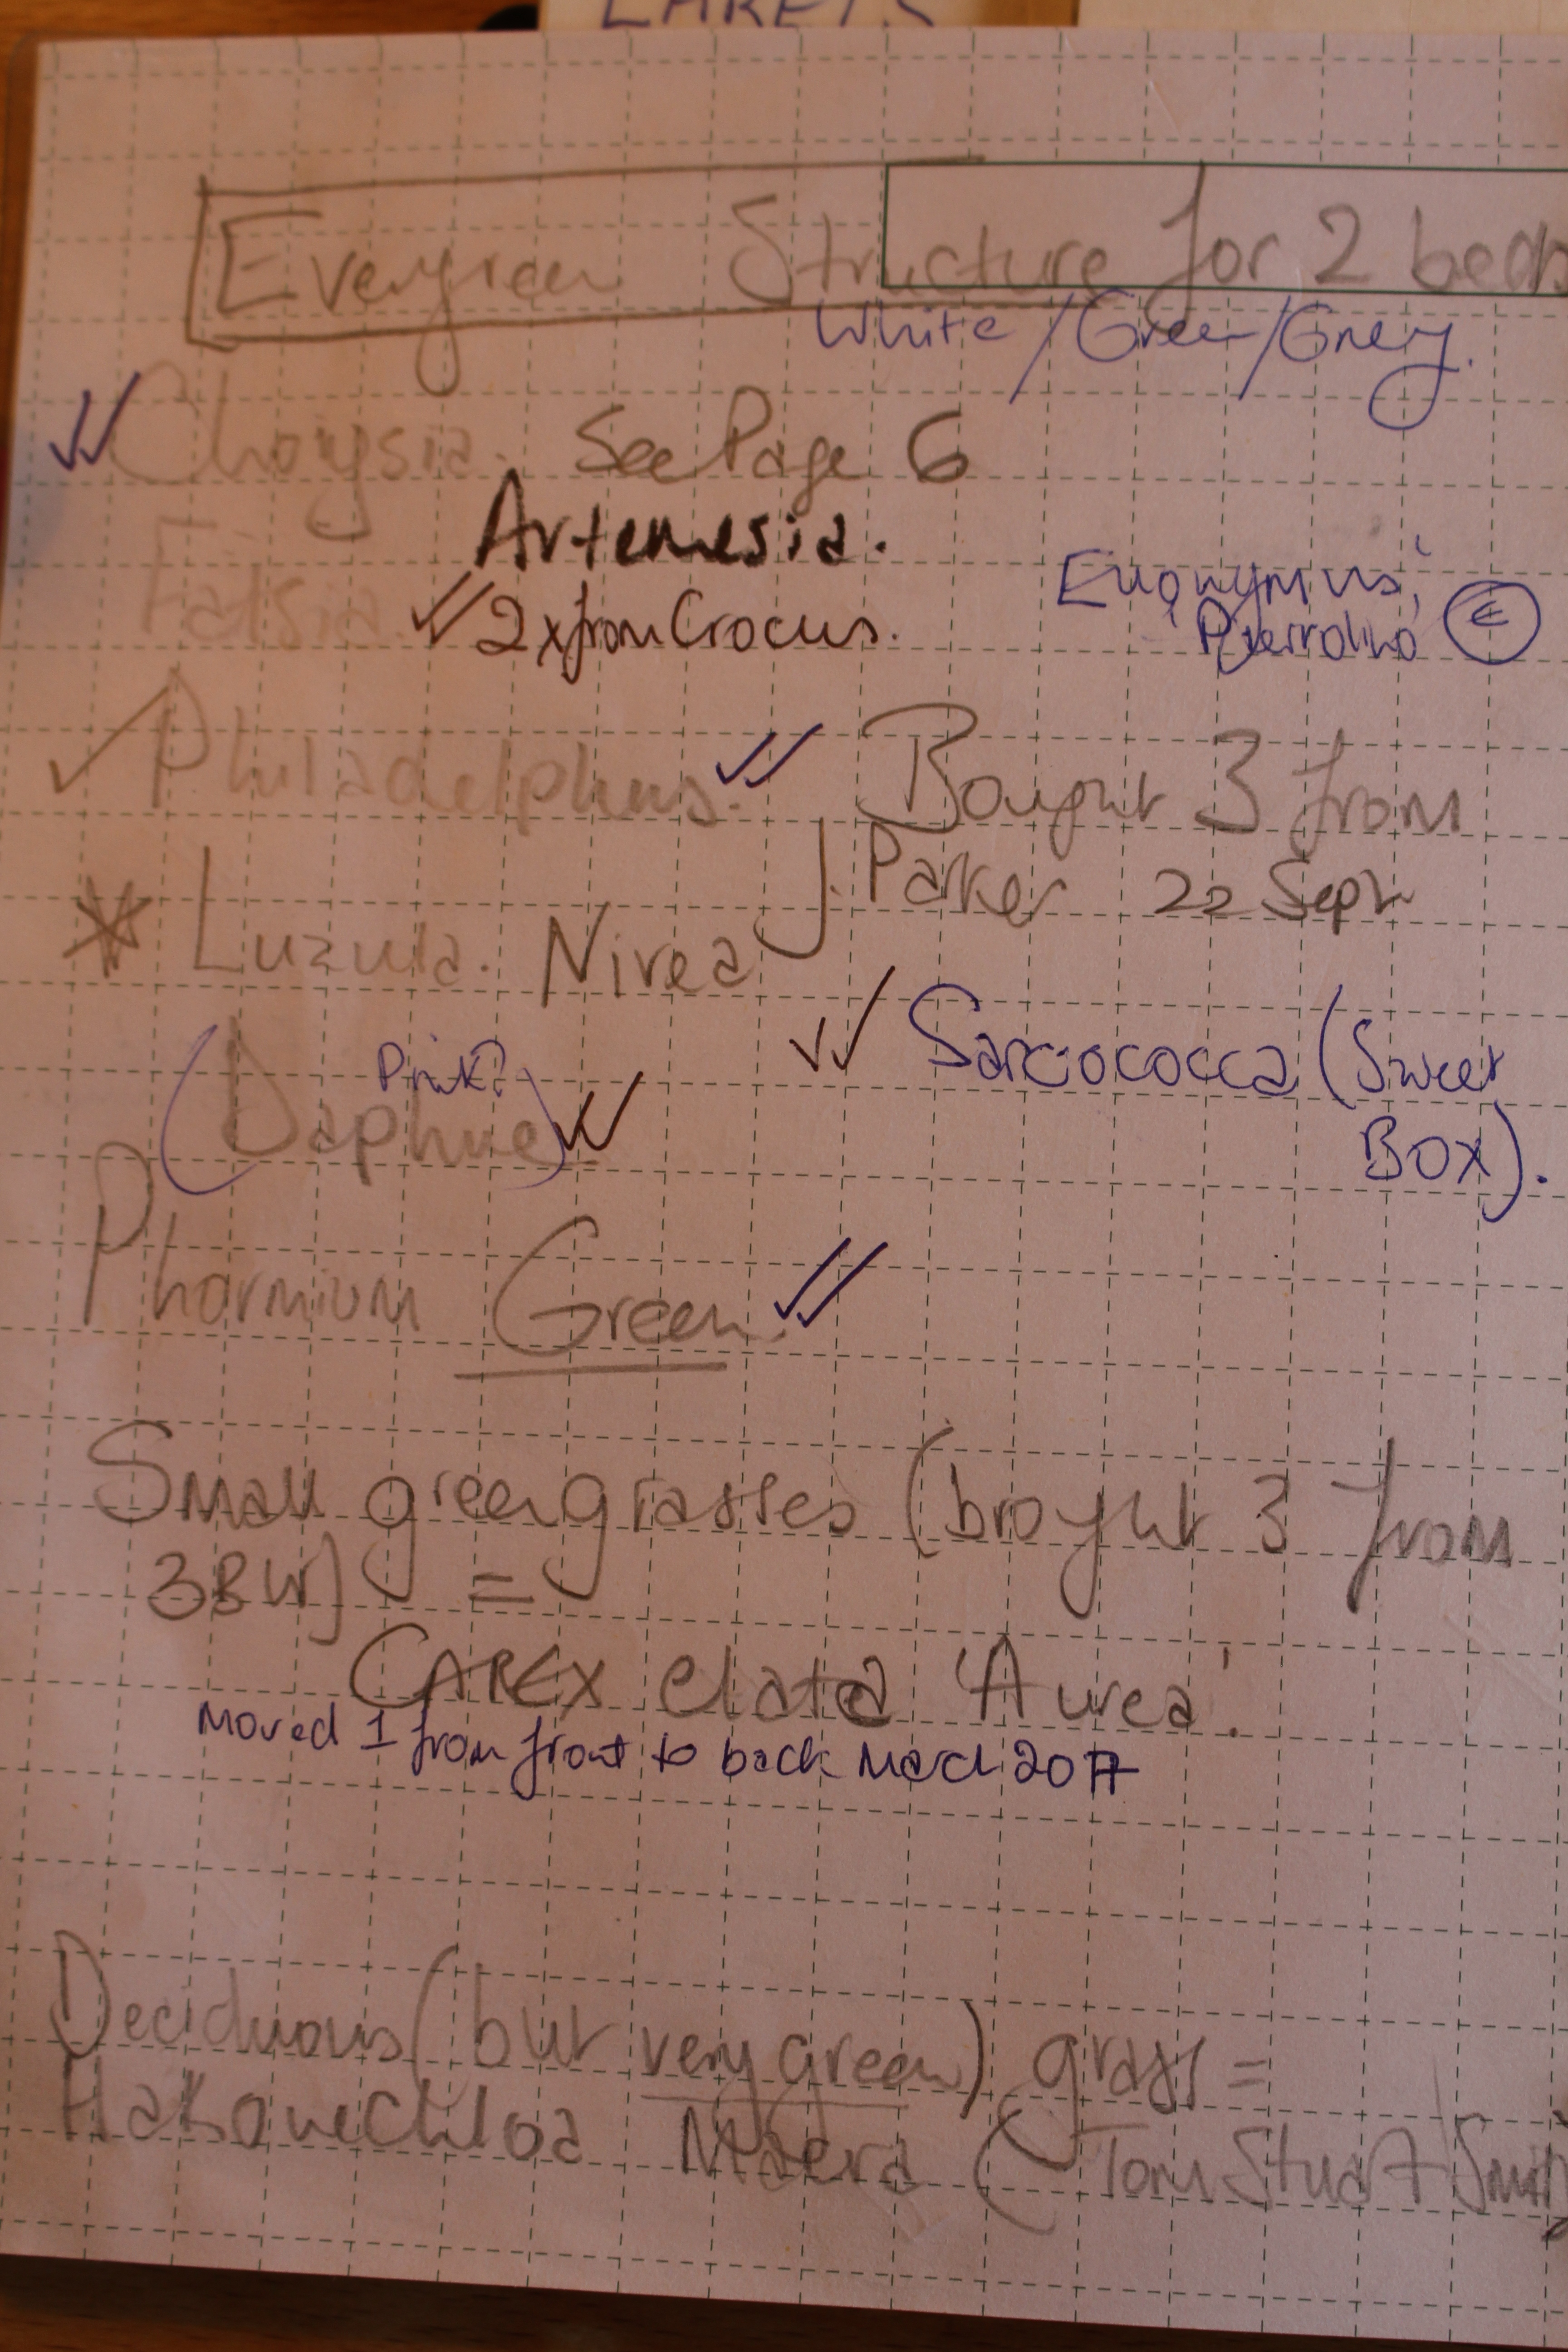 LABELS
Evergreen Structure for 2 beds
White / Green / Grey.
Choysia. See Page 6
Artemesia.
Fatsia. 2x from Crocus.
Euonymus,
'Pierrolino' €
Philadelphus. Bought 3 from
J. Parker 22 Sept
* Luzula. Nivea
Sarcococca (Sweet
Box).
Pink?
(Daphne)
Phormium Green.
Small green grasses (broyht 3 from
3BW) =
CAREX elata 'Aurea'.
Moved 1 from front to back March 2017
Deciduous (but very green) grass =
Hakonechloa Macra (Tom Stuart Smith